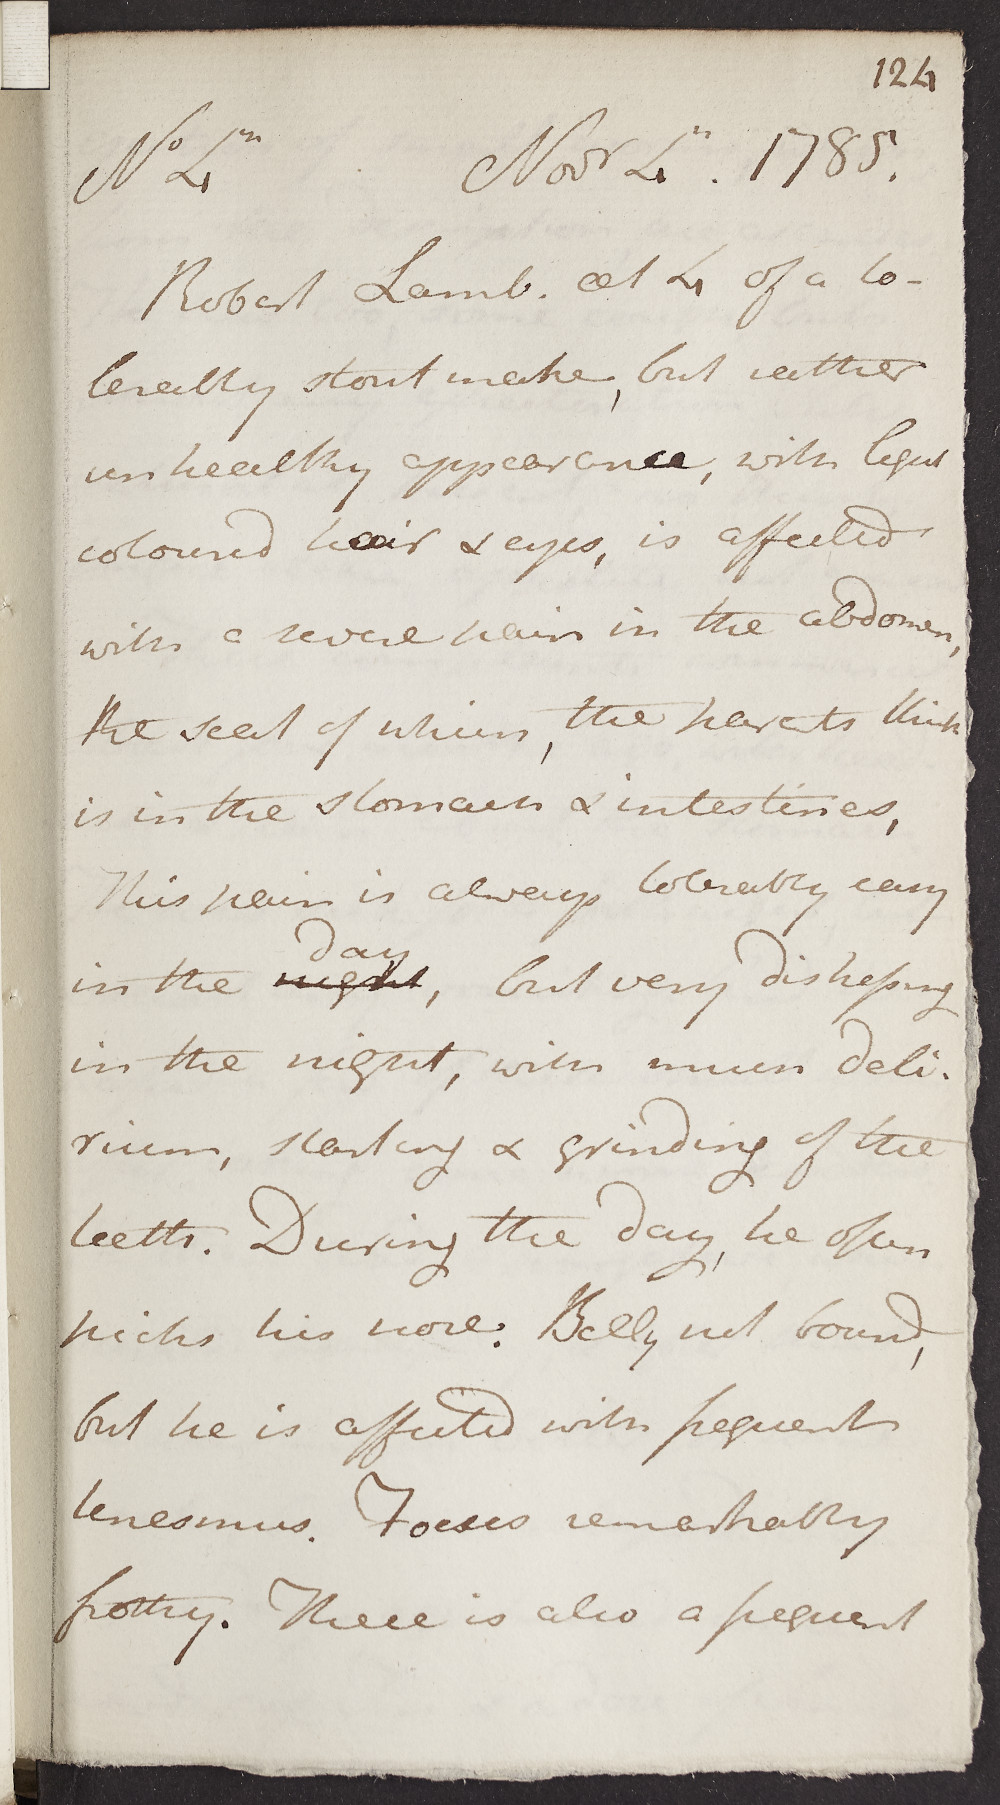 124
No 4th Novr 4th. 1785.
Robert Lamb. æt 4 of a to-
lerably stout make, but rather
unhealthy appearance, with light
coloured hair & eyes, is affected
with a severe pain in the abdomen,
the seat of which, the parents think
is in the stomach & intestines,
This pain is always tolerably easy
day
in the night, but very distressing
in the night, with much deli-
rium, starting & grinding of the
teeth. During the day, he often
picks his nose. Belly not bound,
but he is affected with frequent
tenesmus. Foeces remarkably
frothy. There is also a frequent